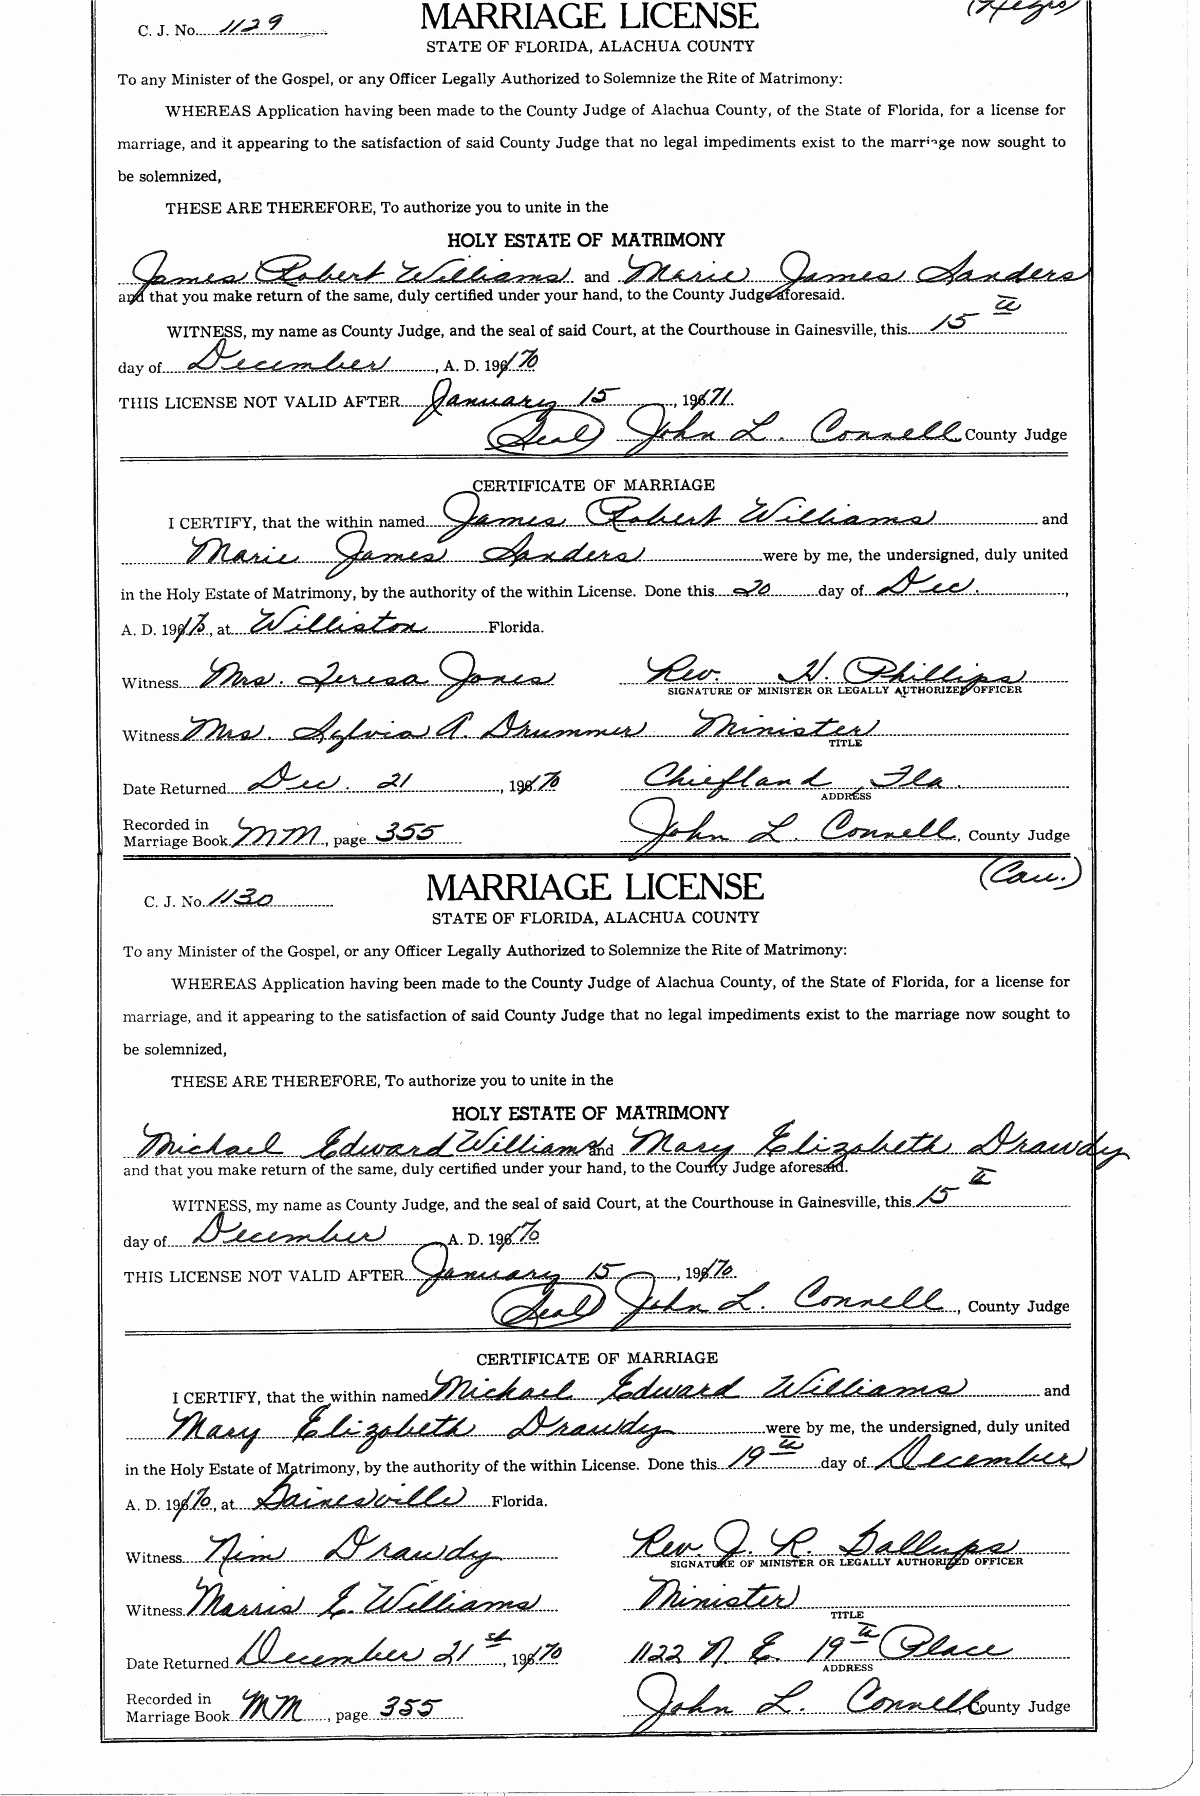 (Negro)
C. J. No. 1129
MARRIAGE LICENSE
STATE OF FLORIDA, ALACHUA COUNTY
To any Minister of the Gospel, or any Officer Legally Authorized to Solemnize the Rite of Matrimony:
WHEREAS Application having been made to the County Judge of Alachua County, of the State of Florida, for a license for
marriage, and it appearing to the satisfaction of said County Judge that no legal impediments exist to the marriage now sought to
be solemnized,
THESE ARE THEREFORE, To authorize you to unite in the
HOLY ESTATE OF MATRIMONY
James Robert Williams and Marie James Sanders
and that you make return of the same, duly certified under your hand, to the County Judge aforesaid.
WITNESS, my name as County Judge, and the seal of said Court, at the Courthouse in Gainesville, this 15th
day of December, A. D. 1970
THIS LICENSE NOT VALID AFTER January 15, 1971
(Seal) John L. Connell County Judge
CERTIFICATE OF MARRIAGE
I CERTIFY, that the within named James Robert Williams and
Marie James Sanders were by me, the undersigned, duly united
in the Holy Estate of Matrimony, by the authority of the within License. Done this 20 day of Dec.,
A. D. 1970, at Williston Florida.
Witness Mrs. Teresa Jones Rev. H. Phillips
SIGNATURE OF MINISTER OR LEGALLY AUTHORIZED OFFICER
Witness Mrs. Sylvia A. Drummer Minister
TITLE
Date Returned Dec. 21, 1970 Chiefland, Fla.
ADDRESS
Recorded in
Marriage Book MM, page 355 John L. Connell, County Judge
(Cau.)
C. J. No. 1130
MARRIAGE LICENSE
STATE OF FLORIDA, ALACHUA COUNTY
To any Minister of the Gospel, or any Officer Legally Authorized to Solemnize the Rite of Matrimony:
WHEREAS Application having been made to the County Judge of Alachua County, of the State of Florida, for a license for
marriage, and it appearing to the satisfaction of said County Judge that no legal impediments exist to the marriage now sought to
be solemnized,
THESE ARE THEREFORE, To authorize you to unite in the
HOLY ESTATE OF MATRIMONY
Michael Edward Williams and Mary Elizabeth Drawdy
and that you make return of the same, duly certified under your hand, to the County Judge aforesaid.
WITNESS, my name as County Judge, and the seal of said Court, at the Courthouse in Gainesville, this 15th
day of December A. D. 1970
THIS LICENSE NOT VALID AFTER January 15, 1970
(Seal) John L. Connell, County Judge
CERTIFICATE OF MARRIAGE
I CERTIFY, that the within named Michael Edward Williams and
Mary Elizabeth Drawdy were by me, the undersigned, duly united
in the Holy Estate of Matrimony, by the authority of the within License. Done this 19th day of December
A. D. 1970, at Gainesville Florida.
Witness Nim Drawdy Rev. J. R. Gallups
SIGNATURE OF MINISTER OR LEGALLY AUTHORIZED OFFICER
Witness Marris E. Williams Minister
TITLE
Date Returned December 21st, 1970 1122 N. E. 19th Place
ADDRESS
Recorded in
Marriage Book MM, page 355 John L. Connell County Judge